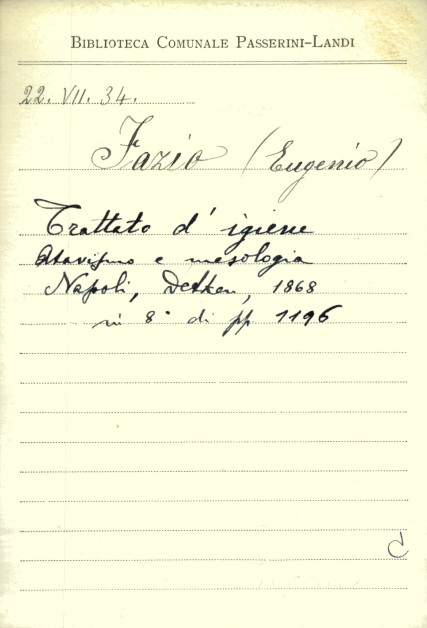 BIBLIOTECA COMUNALE PASSERINI-LANDI
22. VII. 34.
Fazio (Eugenio)
Trattato d' igiene
Atavismo e mesologia
Napoli, Detken, 1868
in 8° di pp 1196